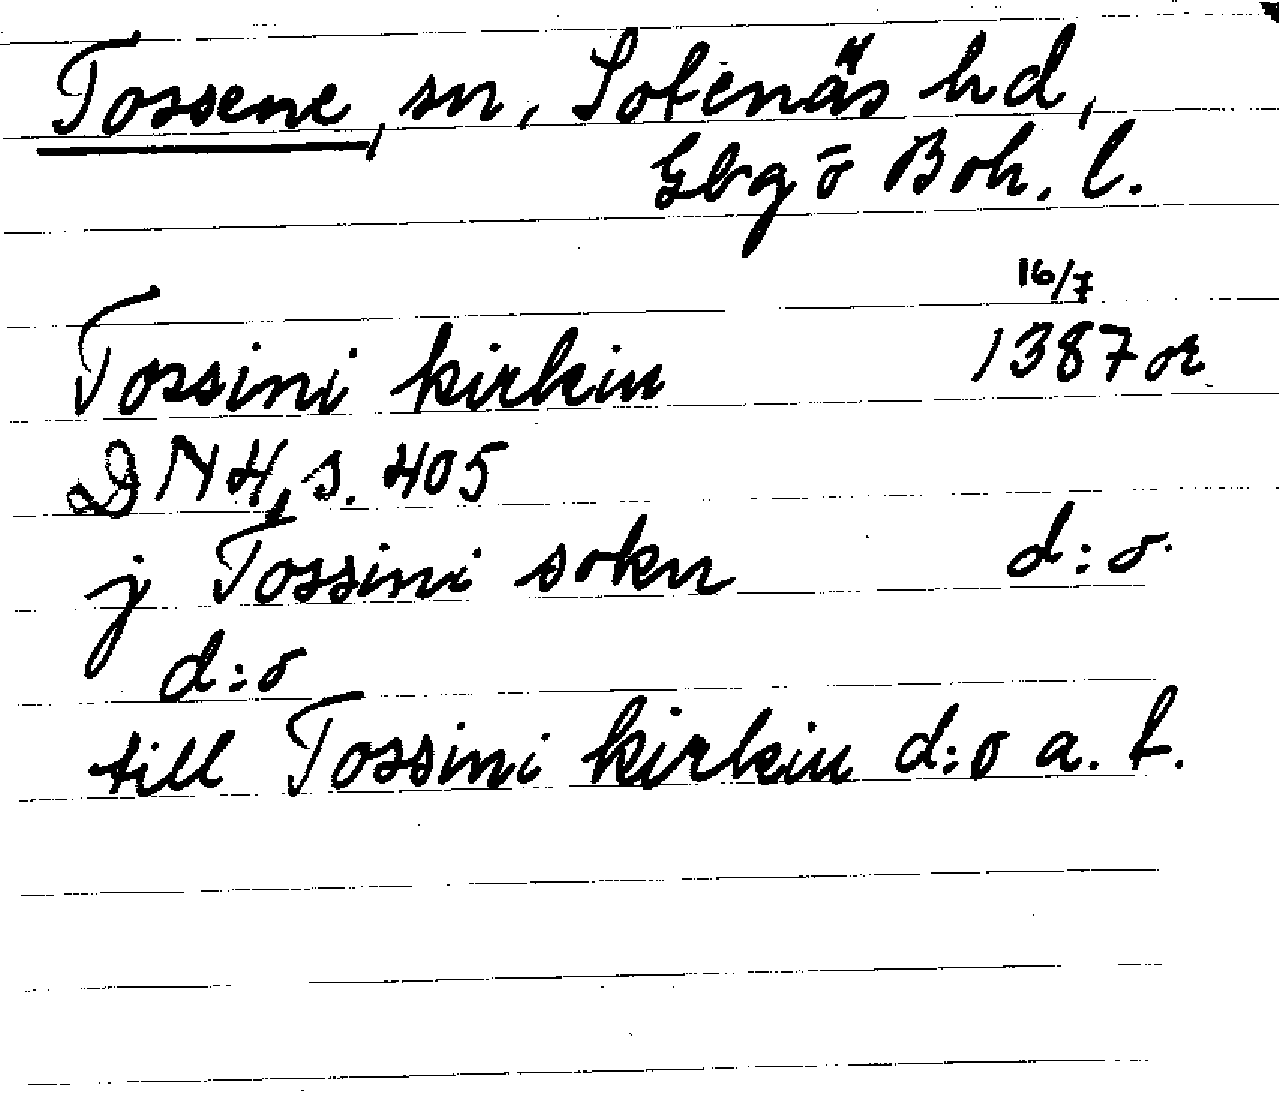 Tossene, sn, Sotenäs hd,
Gbg o Boh. l.
16/7
Tossini kirkiu 1387 or
DN 4, s. 405
j Tossini sokn d:o.
d:o
till Tossini kirkiu d:o a. f.